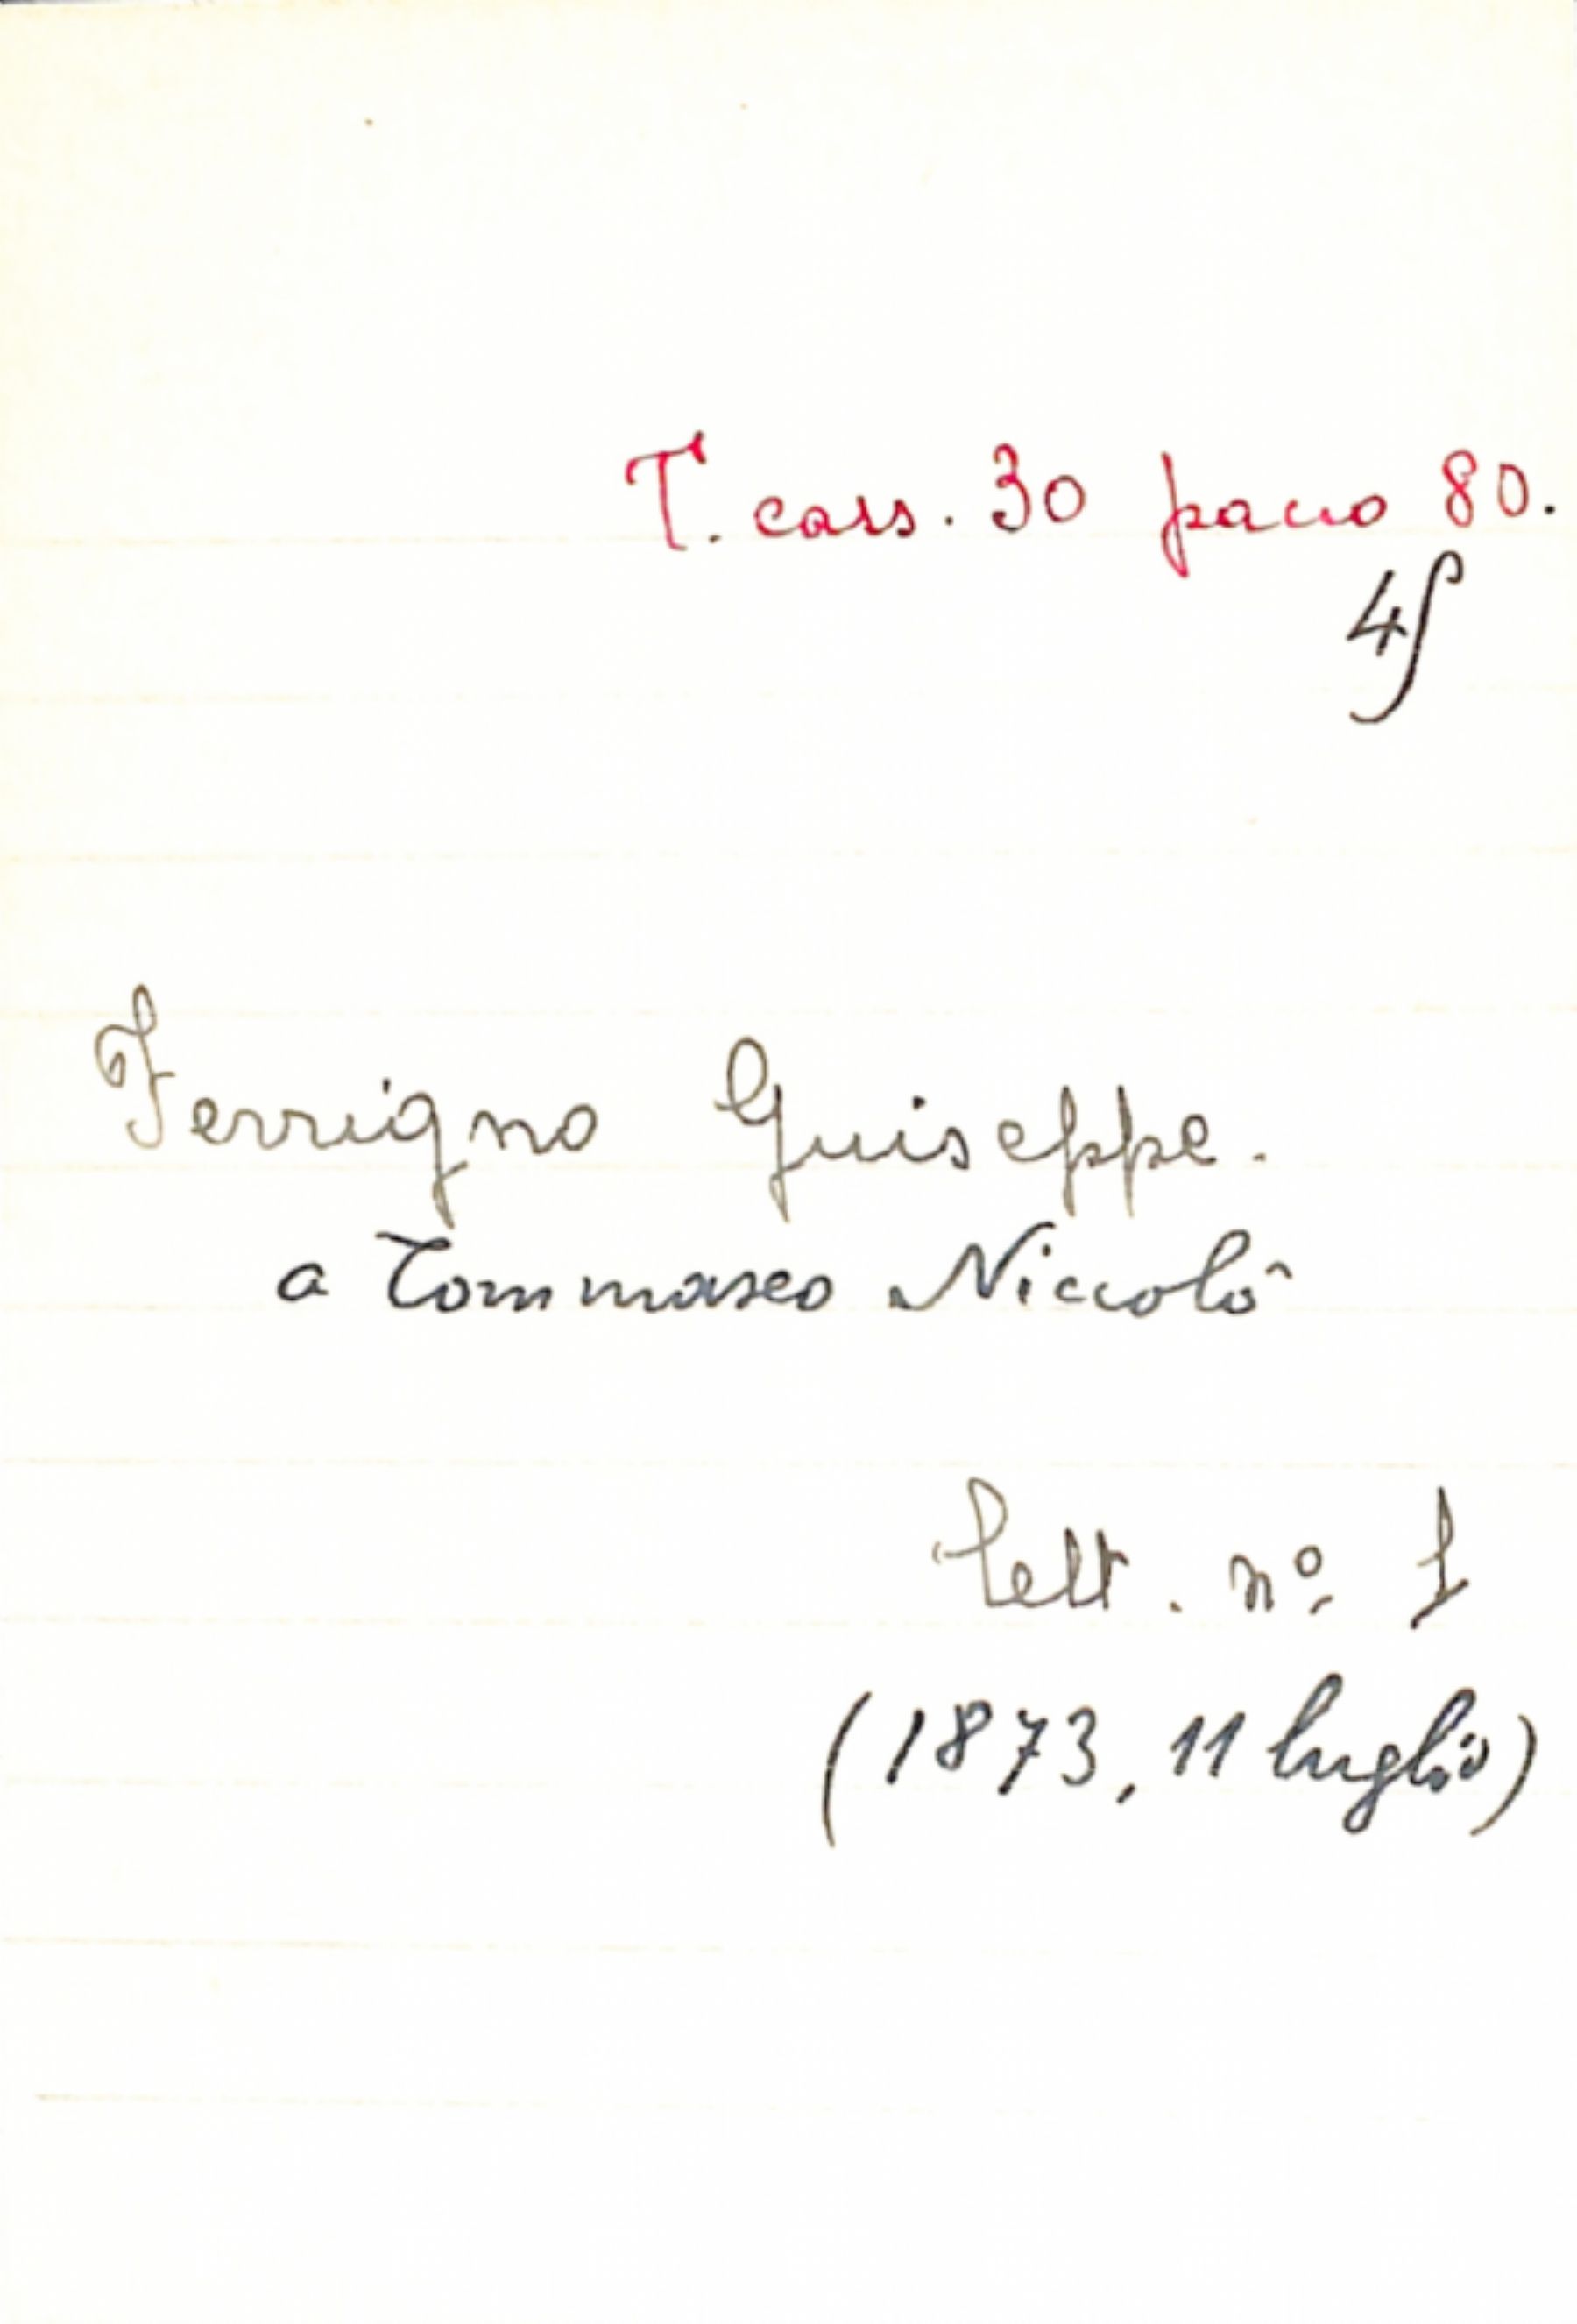 T. cass. 30 pacco 80.
4
Ferrigno Giuseppe.
a Tommaseo Niccolò
Lett. nº 1
(1873, 11 luglio)